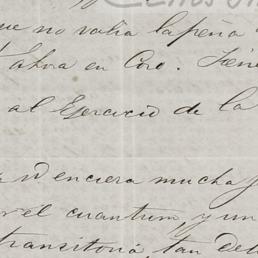 que no valia la pena
ahora en Coro.
al Ejercicio de la
encierra mucha
el cuantum, y un
transitoria, tan